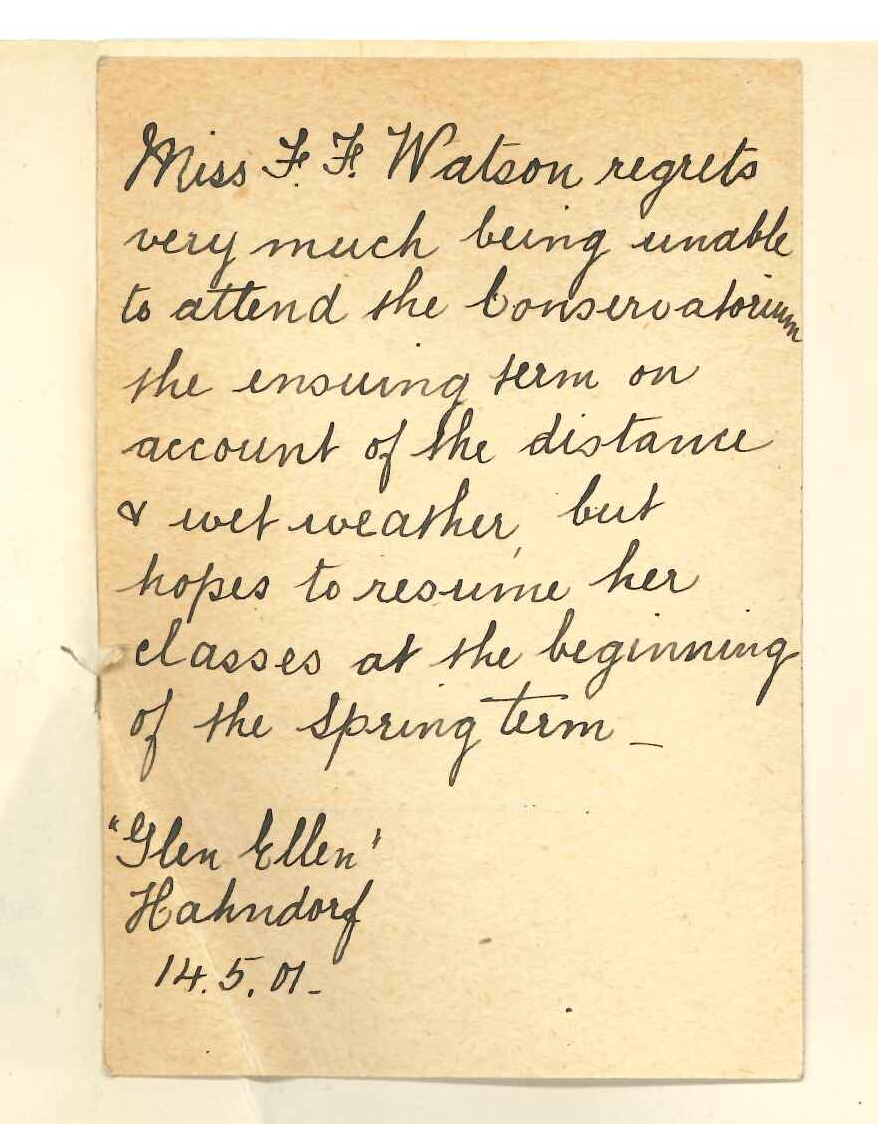 Miss F. F. Watson regrets
very much being unable
to attend the Conservatorium
the ensuing term on
account of the distance
& wet weather, but
hopes to resume her
classes at the beginning
of the Spring term _
"Glen Ellen'
Hahndorf
14.5.01._